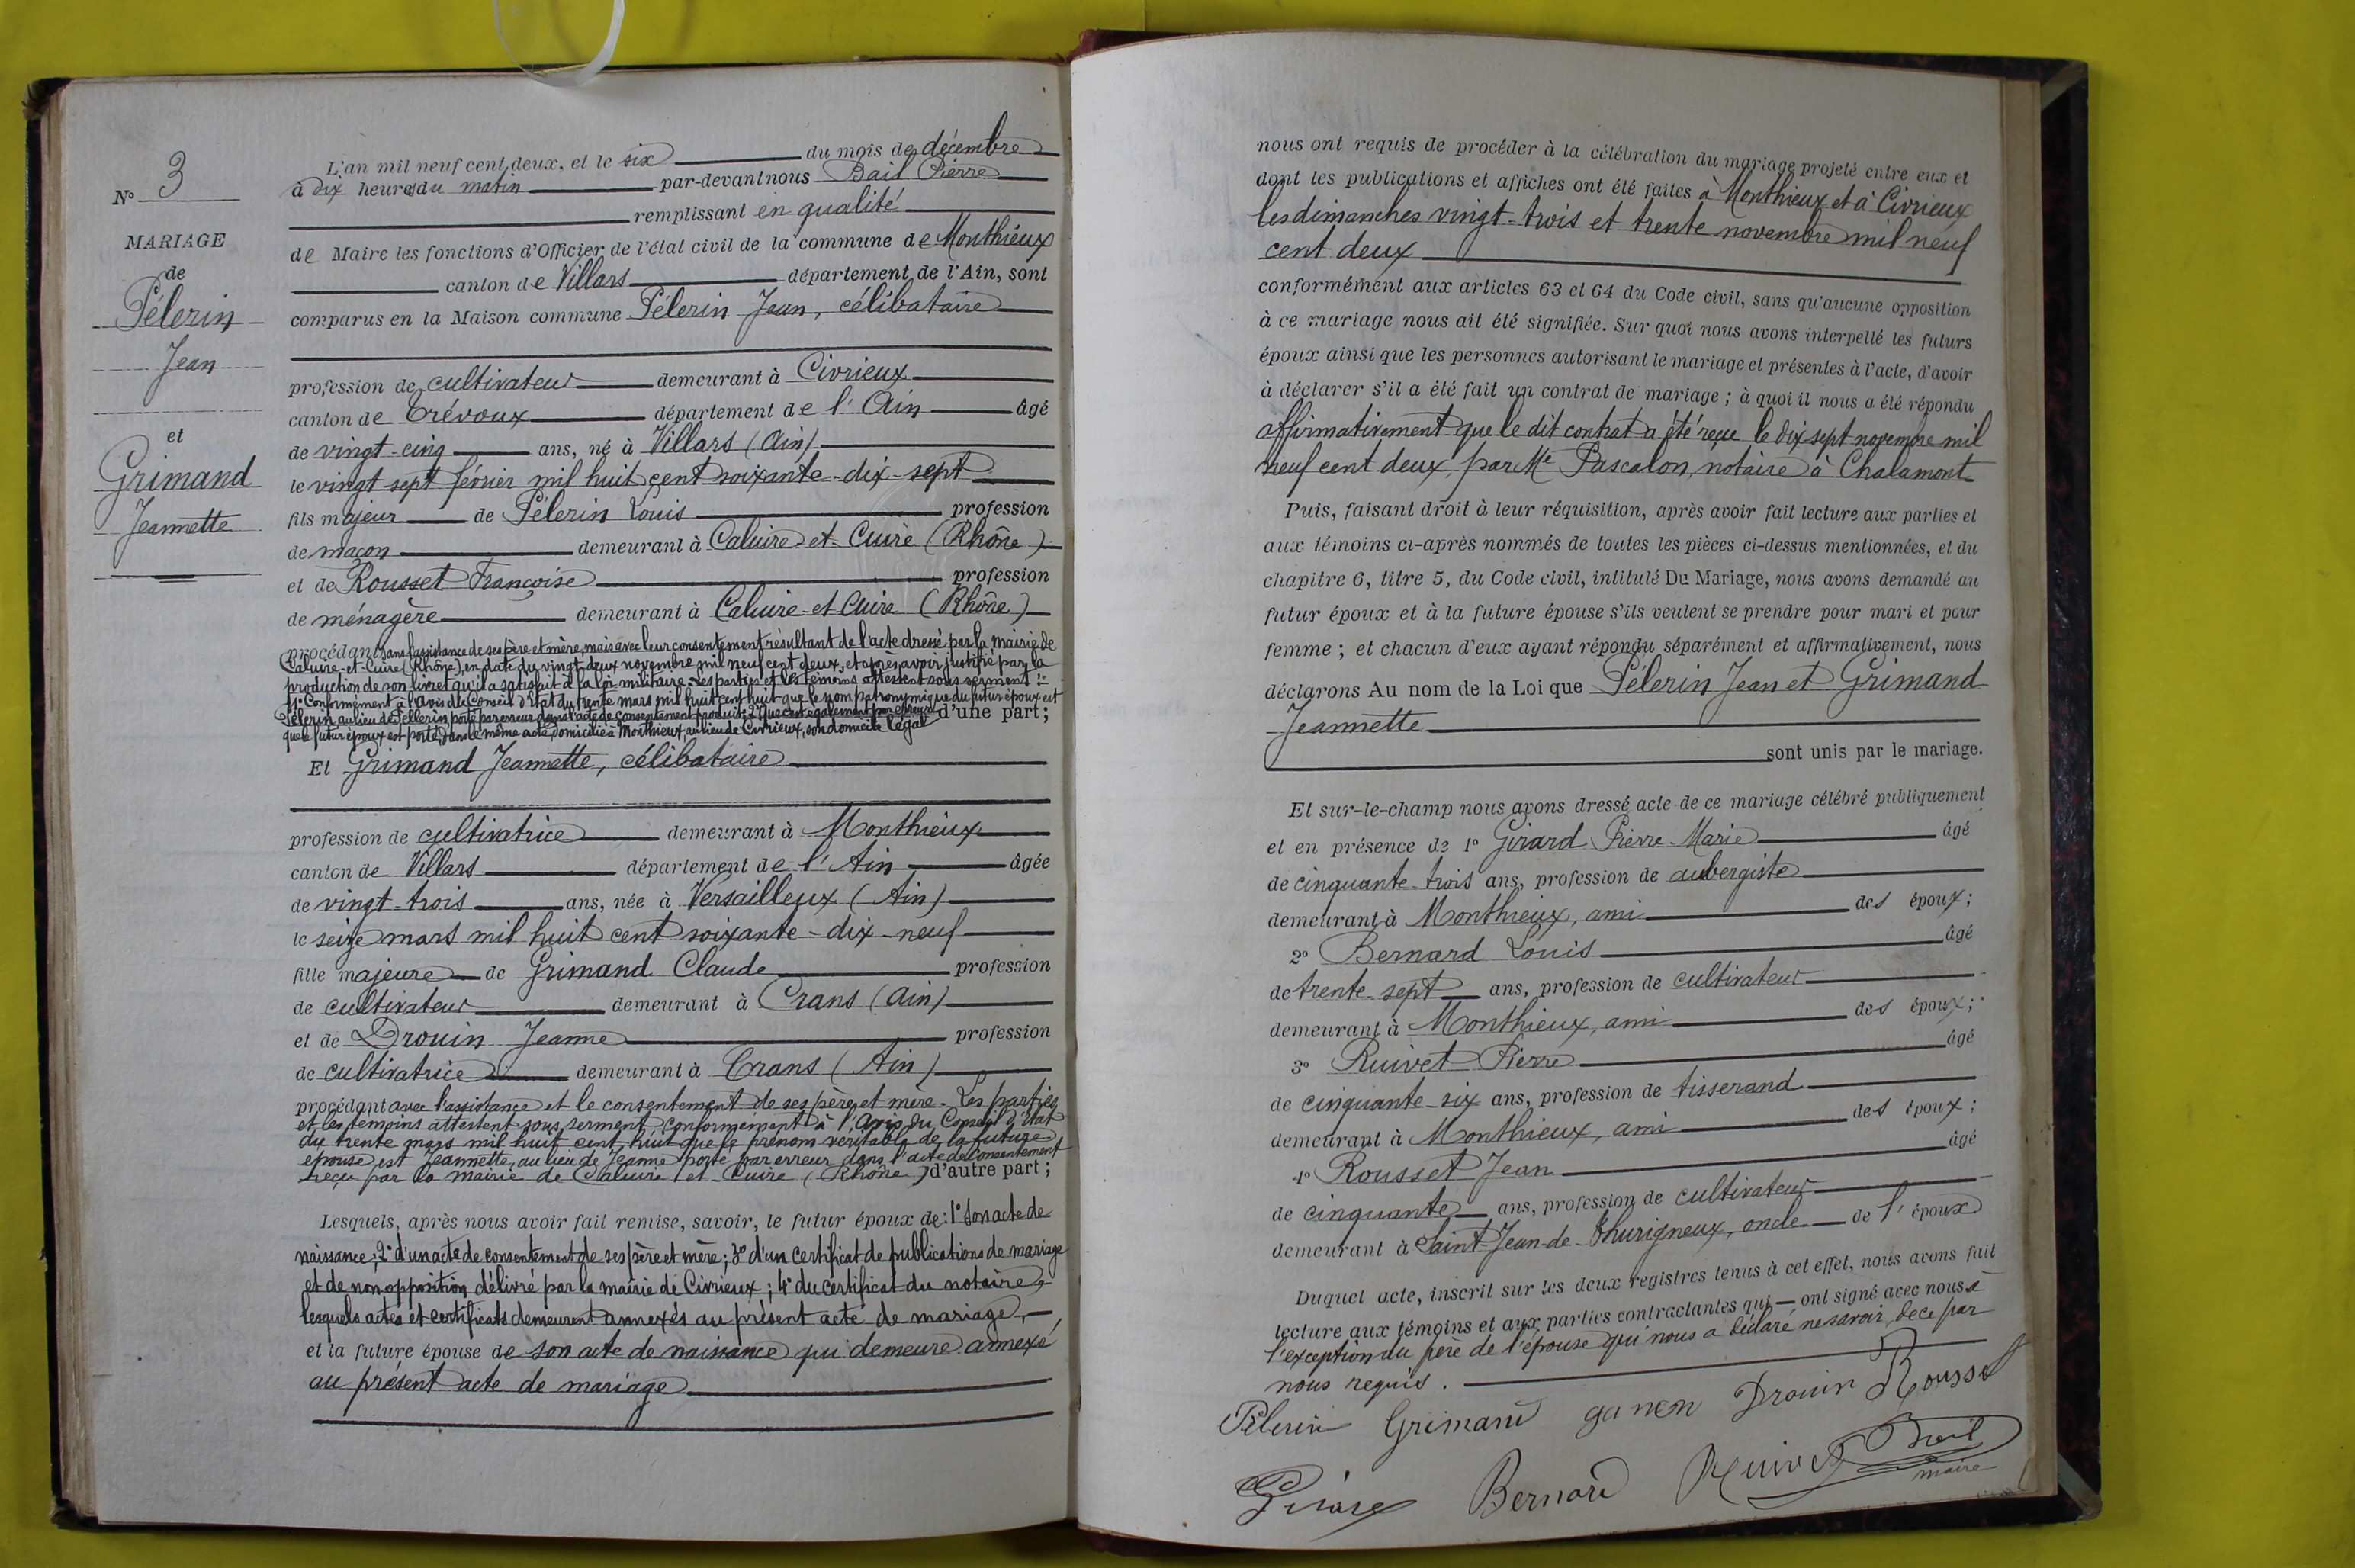 N° 3
MARIAGE
de
Pélerin
Jean
et
Grimand
Jeannette
L'an mil neuf cent deux, et le six du mois de décembre
à dix heures du matin par-devant nous Bail Pierre
remplissant en qualité
de Maire les fonctions d'Officier de l'état civil de la commune de Monthieux
canton de Villars département de l'Ain, sont
comparus en la Maison commune Pélerin Jean, célibataire
profession de cultivateur demeurant à Civrieux
canton de Trévoux département de l'Ain âgé
de vingt-cinq ans, né à Villars (Ain)
le vingt sept février mil huit cent soixante-dix-sept
fils majeur de Pélerin Louis profession
de maçon demeurant à Caluire-et-Cuire (Rhône)
et de Rousset Françoise profession
de ménagère demeurant à Caluire-et-Cuire (Rhône)
procédant sans l'assistance de ses père et mère, mais avec leur consentement résultant de l'acte dressé par la mairie de
Caluire-et-Cuire (Rhône), en date du vingt-deux novembre mil neuf cent deux, et après avoir justifié par la
production de son livret qu'il a satisfait à la loi militaire. Les parties et les témoins attestent sous serment :
1° Conformément à l'avis du Conseil d'Etat du trente mars mil huit cent huit que le nom patronymique du futur époux est
Pélerin au lieu de Pellerin porté par erreur dans l'acte de consentement produit; 2° Que c'est également par erreur d'une part;
que le futur époux est porté, dans le même acte, domicilié à Monthieux, au lieu de Civrieux, son domicile légal
Et Grimand Jeannette, célibataire
profession de cultivatrice demeurant à Monthieux
canton de Villars département de l'Ain âgée
de vingt-trois ans, née à Versailleux (Ain)
le seize mars mil huit cent soixante-dix-neuf
fille majeure de Grimand Claude profession
de cultivateur demeurant à Crans (Ain)
et de Drouin Jeanne profession
de cultivatrice demeurant à Crans (Ain)
procédant avec l'assistance et le consentement de ses père et mère. Les parties
et les témoins attestent sous serment conformément à l'Avis du Conseil d'état
du trente mars mil huit cent huit que le prénoms véritable de la future
épouse est Jeannette, au lieu de Jeanne porté par erreur dans l'acte de consentement
reçu par la mairie de Caluire-et-Cuire (Rhône) d'autre part;
Lesquels, après nous avoir fait remise, savoir, le futur époux de: 1° son acte de
naissance; 2° d'un acte de consentement de ses père et mère; 3° d'un certificat de publications de mariage
et de non opposition délivré par la mairie de Civrieux; 4° du certificat du notaire,
lesquels actes et certificats demeurent annexés au présent acte de mariage,
et la future épouse de son acte de naissance qui demeure annexé
au présent acte de mariage
nous ont requis de procéder à la célébration du mariage projeté entre eux et
dont les publications et affiches ont été faites à Monthieux et à Civrieux
les dimanches vingt-trois et trente novembre mil neuf
cent deux
conformément aux articles 63 et 64 du Code civil, sans qu'aucune opposition
à ce mariage nous ait été signifiée. Sur quoi nous avons interpellé les futurs
époux ainsi que les personnes autorisant le mariage et présentes à l'acte, d'avoir
à déclarer s'il a été fait un contrat de mariage; à quoi il nous a été répondu
affirmativement que le dit contrat a été reçue le dix sept novembre mil
neuf cent deux, par Me Pascalon, notaire à Chalamont
Puis, faisant droit à leur réquisition, après avoir fait lecture aux parties et
aux témoins ci-après nommés de toutes les pièces ci-dessus mentionnées, et du
chapitre 6, titre 5, du Code civil, intitulé Du Mariage, nous avons demandé au
futur époux et à la future épouse s'ils veulent se prendre pour mari et pour
femme; et chacun d'eux ayant répondu séparément et affirmativement, nous
déclarons Au nom de la Loi que Pélerin Jean et Grimand
Jeannette
sont unis par le mariage.
Et sur-le-champ nous avons dressé acte de ce mariage célébré publiquement
et en présence de 1° Girard Pierre Marie âgé
de cinquante-trois ans, profession de aubergiste
demeurant à Monthieux, ami des époux;
2° Bernard Louis âgé
de trente-sept ans, profession de cultivateur
demeurant à Monthieux, ami des époux;
3° Ruivet Pierre âgé
de cinquante-six ans, profession de tisserand
demeurant à Monthieux, ami des époux;
4° Rousset Jean âgé
de cinquante ans, profession de cultivateur
demeurant à Saint-Jean-de-Thurigneux, oncle de l'époux
Duquel acte, inscrit sur les deux registres tenus à cet effet, nous avons fait
lecture aux témoins et aux parties contractantes qui ont signé avec nous à
l'exception du père de l'épouse qui nous a déclaré ne savoir, de ce par
nous requis.
Pélerin Grimand Drouin Rousset
Girard Bernard Ruivet Bail
maire